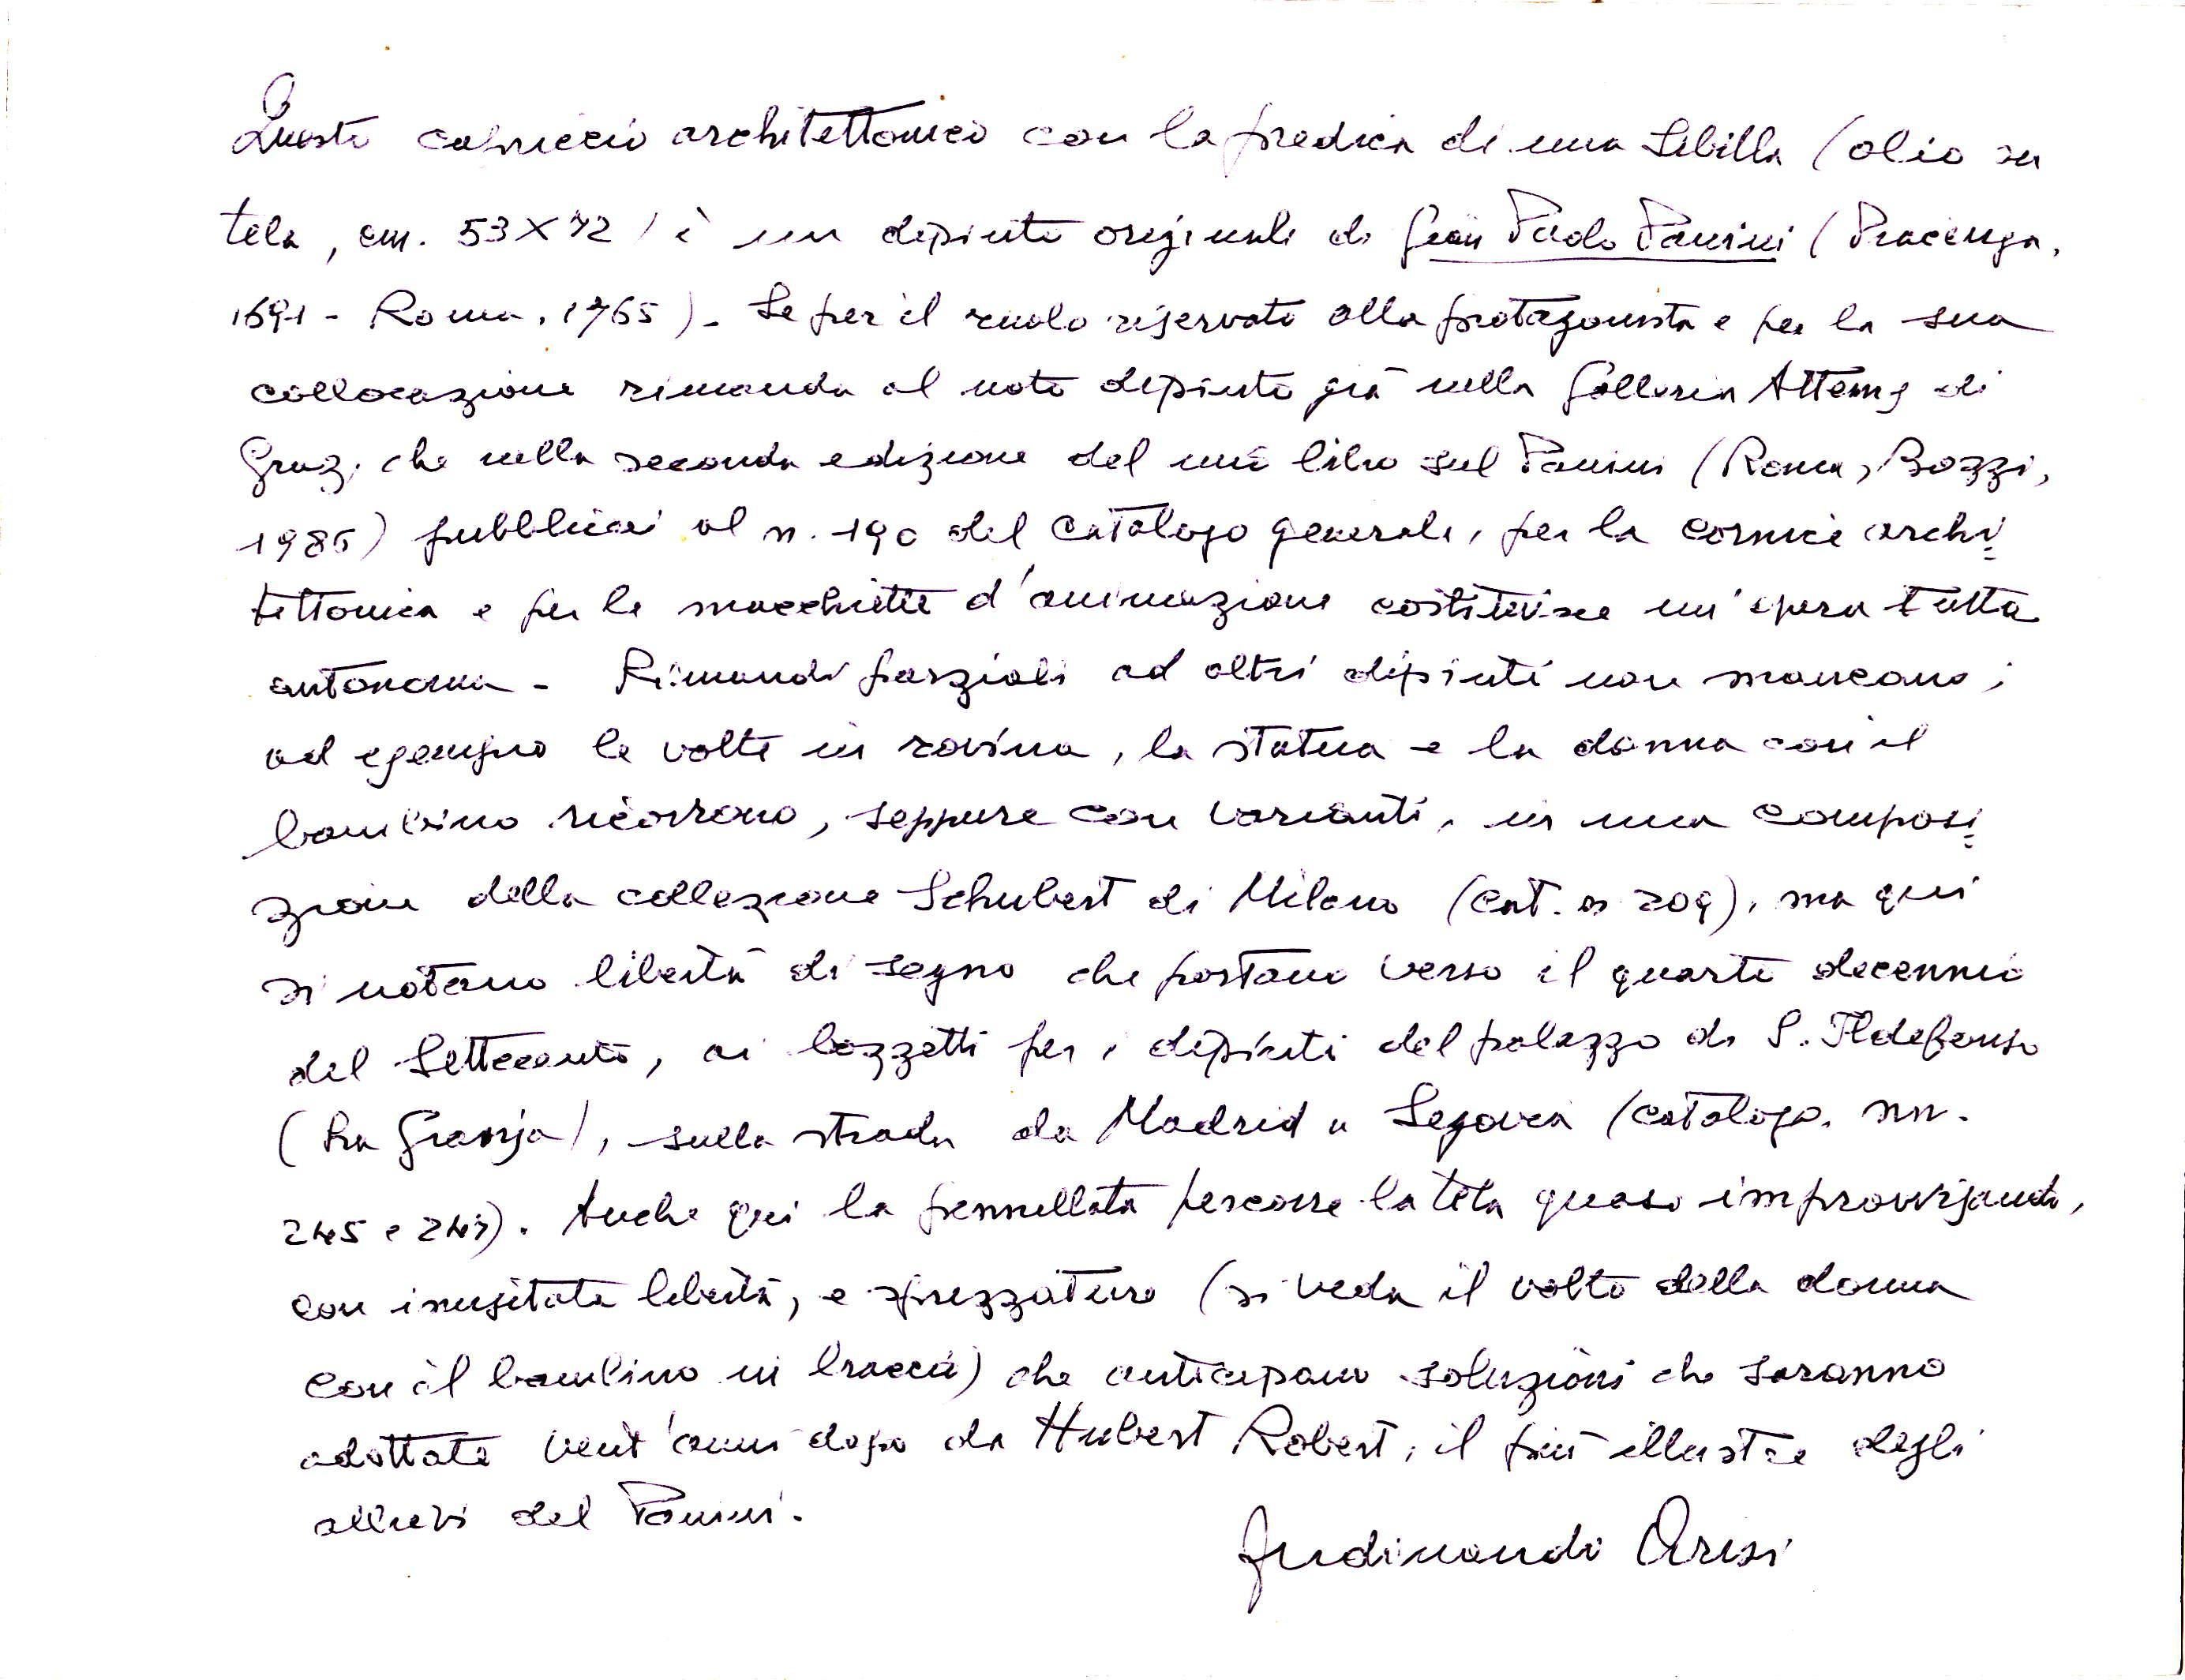 Questo capriccio architettonico con la predica di una Sibilla (olio su
tela, cm. 53X72) è un dipinto originale di Gian Paolo Panini (Piacenza,
1691 - Roma, 1765). Se per il ruolo riservato alla protagonista e per la sua
collocazione rimanda al noto dipinto già nella Galleria Attems di
Graz, che nella seconda edizione del mio libro sul Panini (Roma, Bozzi,
1986) pubblicai al n. 190 del catalogo generale, per la cornice archi=
tettonica e per le macchiette d'animazione costituisce un'opera tutta
autonoma - Rimandi parziali ad altri dipinti non mancano;
ad esempio le volte in rovina, la statua e la donna con il
bambino ricorrono, seppure con varianti, in una composi=
zione della collezione Schubert di Milano (cat. n 209), ma qui
si notano libertà di segno che portano verso il quarto decennio
del Settecento, ai bozzetti per i dipinti del palazzo di S. Ildefonso
(La Granja), sulla strada da Madrid a Segovia (catalogo, nn.
245 e 247). Anche qui la pennellata percorre la tela quasi improvvisando,
con inusitata libertà, e sprezzatura (si veda il volto della donna
con il bambino in braccio) che anticipano soluzioni che saranno
adottate vent'anni dopo da Hubert Robert, il più illustre degli
allievi del Panini.
Ferdinando Arisi